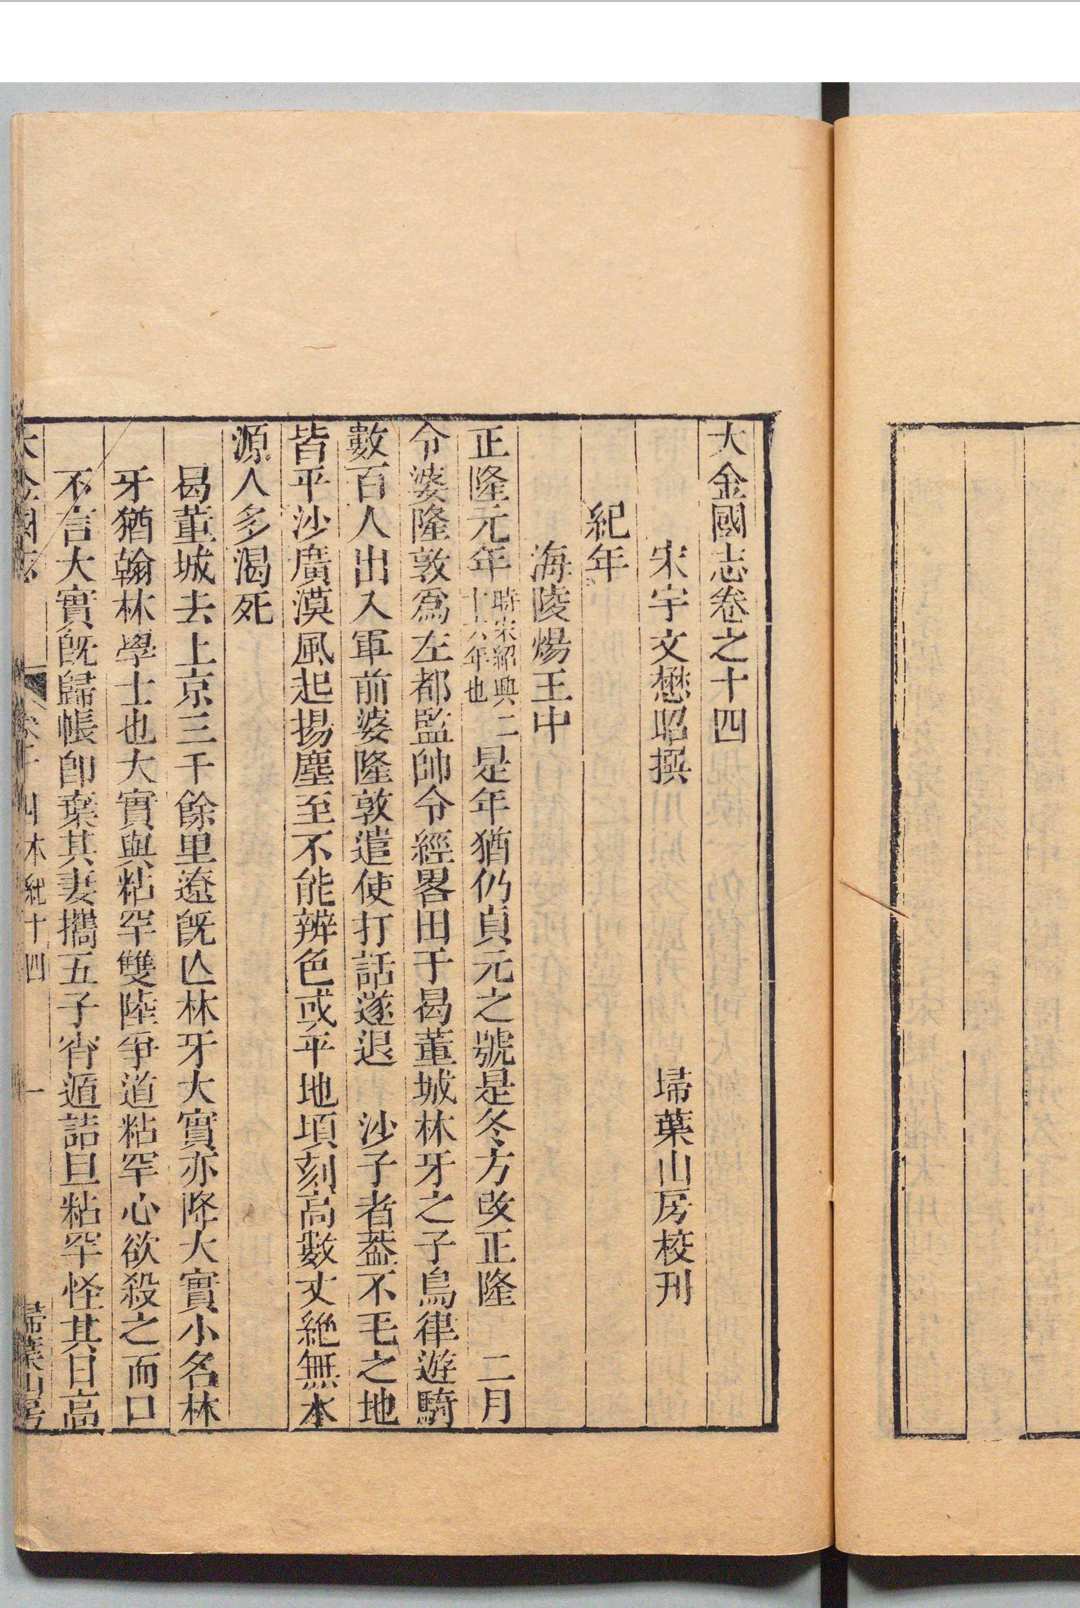 大金國志卷之十四
宋宇文懋昭撰 埽葉山房校刊
紀年
海陵煬王中
正隆元年時宋紹興二十六年也是年猶仍貞元之號是冬方改正隆 二月
令婆隆敦爲左都監帥令經畧田于曷董城林牙之子鳥律遊騎
數百人出入軍前婆隆敦遣使打話遂退 沙子者葢不毛之地
皆平沙廣漠風起揚塵至不能辨色或平地頃刻高數丈絶無水
源人多渴死
曷董城去上京三千餘里遼旣亾林牙大實亦降大實小名林
牙猶翰林學士也大實與粘罕雙陸爭道粘罕心欲殺之而口
不言大實旣歸帳卽棄其妻攜五子宵遁詰旦粘罕怪其日高
大金國志 卷十四 本紀十四 一 埽葉山房